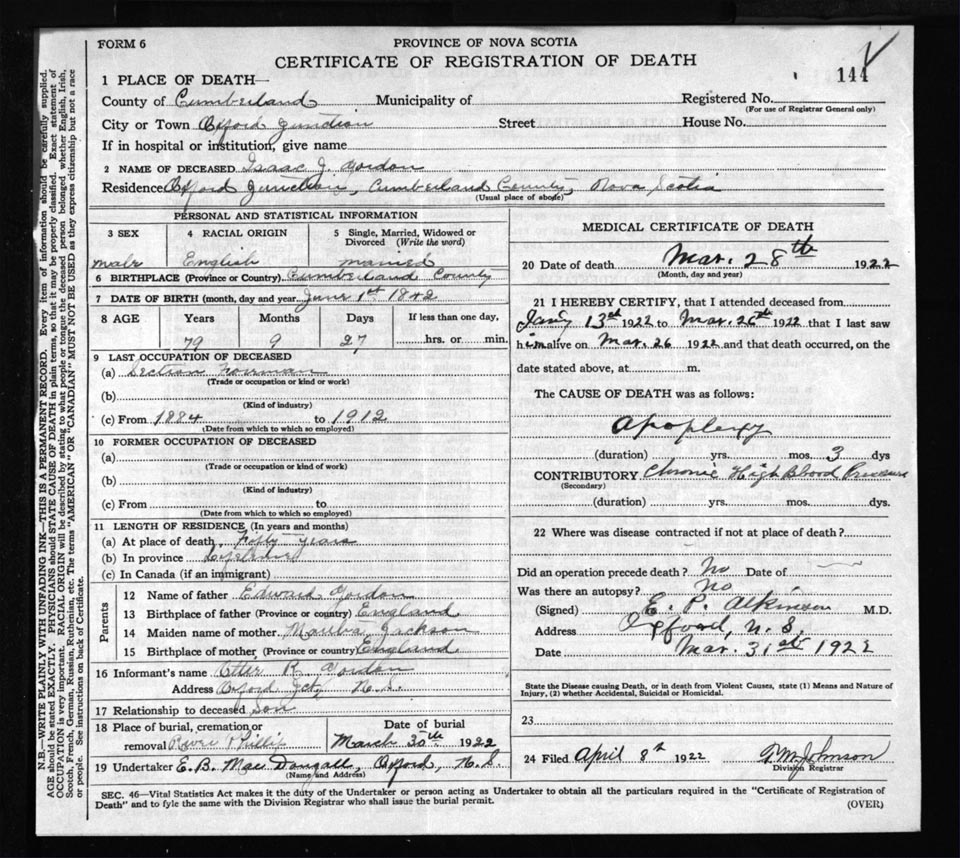 FORM 6
PROVINCE OF NOVA SCOTIA
CERTIFICATE OF REGISTRATION OF DEATH
144
1 PLACE OF DEATH—
County of Cumberland Municipality of Registered No.
(For use of Registrar General only)
City or Town Oxford Junction Street House No.
If in hospital or institution, give name
2 NAME OF DECEASED Isaac J. Gordon
Residence Oxford Junction, Cumberland County, Nova Scotia
(Usual place of abode)
PERSONAL AND STATISTICAL INFORMATION
3 SEX 4 RACIAL ORIGIN 5 Single, Married, Widowed or Divorced (Write the word)
male English married
6 BIRTHPLACE (Province or Country) Cumberland County
7 DATE OF BIRTH (month, day and year) June 1st 1842
8 AGE Years Months Days If less than one day,
79 9 27 hrs. or min.
9 LAST OCCUPATION OF DECEASED
(a) Section Foreman
(Trade or occupation or kind or work)
(b)
(Kind of industry)
(c) From 1884 to 1912
(Date from which to which so employed)
10 FORMER OCCUPATION OF DECEASED
(a)
(Trade or occupation or kind of work)
(b)
(Kind of industry)
(c) From to
(Date from which to which so employed)
11 LENGTH OF RESIDENCE (In years and months)
(a) At place of death Fifty years
(b) In province Lifetime
(c) In Canada (if an immigrant)
Parents
12 Name of father Edward Gordon
13 Birthplace of father (Province or country) England
14 Maiden name of mother Jackson
15 Birthplace of mother (Province or country) England
16 Informant's name R. Gordon
Address Oxford Jct, N.S.
17 Relationship to deceased Son
18 Place of burial, cremation or removal River Phillip
Date of burial March 30th 1922
19 Undertaker E. B. Mac Dougall, Oxford, N.S
(Name and Address)
MEDICAL CERTIFICATE OF DEATH
20 Date of death Mar. 28th 1922
(Month, day and year)
21 I HEREBY CERTIFY, that I attended deceased from
1922 to Mar. 26th 1922 that I last saw
him alive on Mar. 26 1922 and that death occurred, on the
date stated above, at m.
The CAUSE OF DEATH was as follows:
Apoplexy
(duration) yrs. mos. 3 dys
CONTRIBUTORY Chronic High Blood Pressure
(Secondary)
(duration) yrs. mos. dys.
22 Where was disease contracted if not at place of death?
Did an operation precede death? No Date of
Was there an autopsy? no
(Signed) E. P. Atkinson M.D.
Address Oxford, N.S.
Date Mar. 31st 1922
State the Disease causing Death, or in death from Violent Causes, state (1) Means and Nature of
Injury, (2) whether Accidental, Suicidal or Homicidal.
23
24 Filed April 8th 1922 Johnson
Division Registrar
SEC. 46—Vital Statistics Act makes it the duty of the Undertaker or person acting as Undertaker to obtain all the particulars required in the "Certificate of Registration of
Death" and to fyle the same with the Division Registrar who shall issue the burial permit.
(OVER)
N.B.—WRITE PLAINLY WITH UNFADING INK—THIS IS A PERMANENT RECORD. Every item of information should be carefully supplied.
AGE should be stated EXACTLY. PHYSICIANS should STATE CAUSE OF DEATH in plain terms, so that it may be properly classified. Exact statement of
OCCUPATION is very important. RACIAL ORIGIN will be described by stating to what people or tongue the deceased person belonged whether English, Irish,
Scotch, French, German, Russian, Ruthenian, etc. The terms "AMERICAN" OR "CANADIAN" MUST NOT BE USED as they express citizenship but not a race
or people. See instructions on back of Certificate.